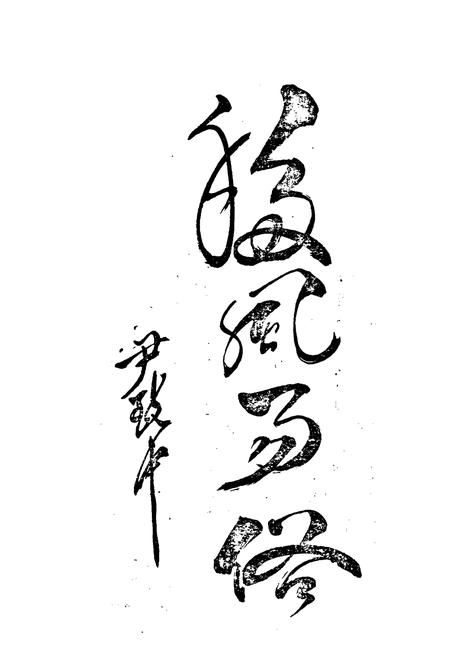 移風易俗
尹致中